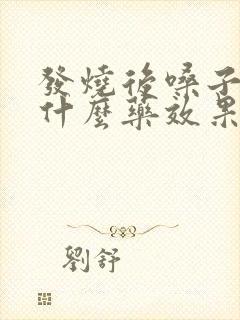 發燒後嗓子
什麼藥效果
劉舒